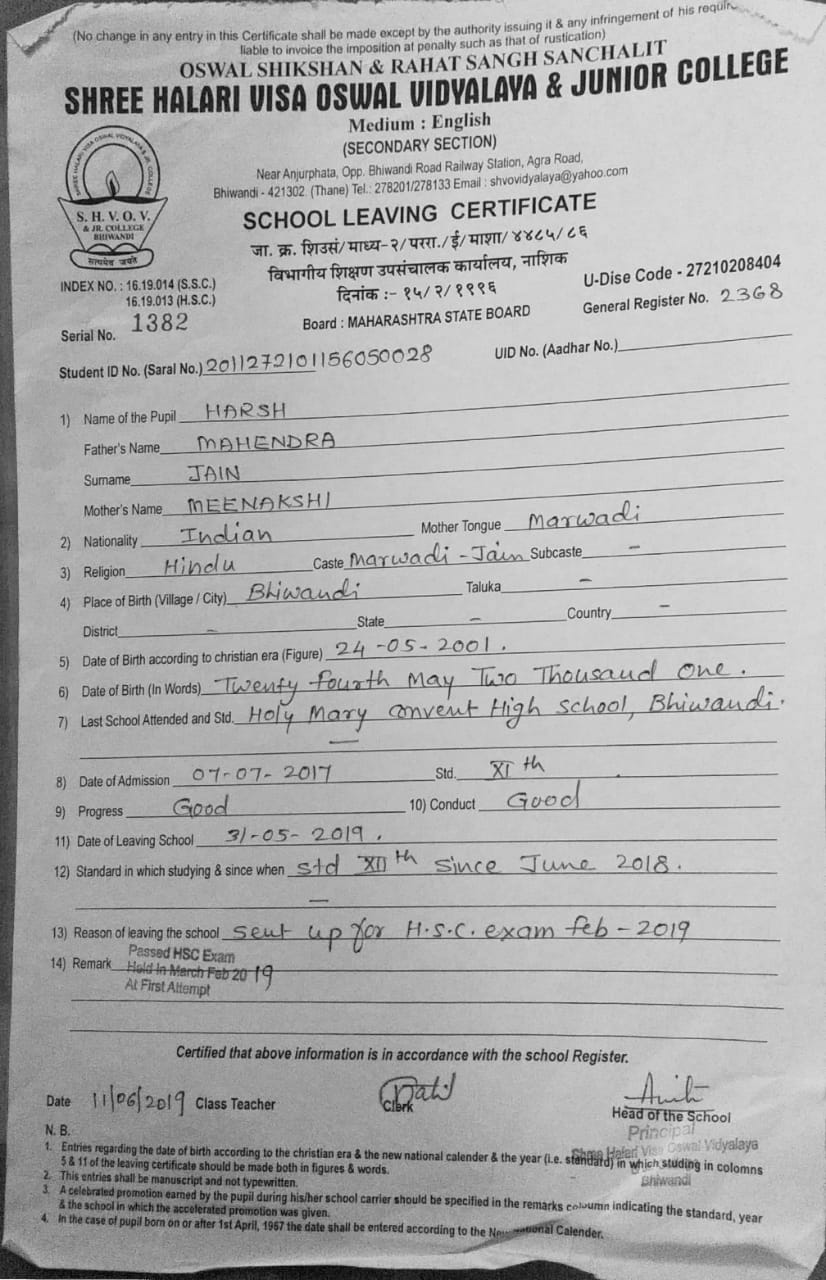 (No change in any entry in this Certificate shall be made except by the authority issuing it & any infringement of his
liable to invoice the imposition at penalty such as that of rustication)
OSWAL SHIKSHAN & RAHAT SANGH SANCHALIT
SHREE HALARI VISA OSWAL VIDYALAYA & JUNIOR COLLEGE
Medium : English
(SECONDARY SECTION)
Near Anjurphata, Opp. Bhiwandi Road Railway Station, Agra Road,
Bhiwandi - 421302. (Thane) Tel.: 278201/278133 Email : shvovidyalaya@yahoo.com
SHREE HALARI VISA OSWAL VIDYALAYA & JR. COLLEGE
S. H. V. O. V.
& JR. COLLEGE
BHIWANDI
सत्यमेव जयते
SCHOOL LEAVING CERTIFICATE
जा. क्र. शिउसं/माध्य-२/पररा./ई/माशा/४४८५/८६
विभागीय शिक्षण उपसंचालक कार्यालय, नाशिक
दिनांक :- १५/२/१९९६
INDEX NO. : 16.19.014 (S.S.C.)
16.19.013 (H.S.C.)
U-Dise Code - 27210208404
Serial No. 1382
Board : MAHARASHTRA STATE BOARD
General Register No. 2368
Student ID No. (Saral No.) 2011272101156050028
UID No. (Aadhar No.)
1) Name of the Pupil HARSH
Father's Name MAHENDRA
Surname JAIN
Mother's Name MEENAKSHI
2) Nationality Indian Mother Tongue Marwadi
3) Religion Hindu Caste Marwadi - Jain Subcaste –
4) Place of Birth (Village / City) Bhiwandi Taluka –
District – State – Country –
5) Date of Birth according to christian era (Figure) 24-05-2001.
6) Date of Birth (In Words) Twenty fourth May Two Thousand One.
7) Last School Attended and Std. Holy Mary Convent High School, Bhiwandi.
–
8) Date of Admission 07-07-2017 Std. XIth
9) Progress Good 10) Conduct Good
11) Date of Leaving School 31-05-2019.
12) Standard in which studying & since when Std XIIth Since June 2018.
–
13) Reason of leaving the school Sent up for H.S.C. exam feb-2019
14) Remark Passed HSC Exam
Held In March Feb 2019
At First Attempt
Certified that above information is in accordance with the school Register.
Date 11/06/2019 Class Teacher
Clerk
Head of the School
Principal
Shree Halari Visa Oswal Vidyalaya
Bhiwandi
N. B.
1. Entries regarding the date of birth according to the christian era & the new national calender & the year (i.e. standard) in which studing in colomns
5 & 11 of the leaving certificate should be made both in figures & words.
2. This entries shall be manuscript and not typewritten.
3. A celebrated promotion earned by the pupil during his/her school carrier should be specified in the remarks column indicating the standard, year
& the school in which the accelerated promotion was given.
4. In the case of pupil born on or after 1st April, 1967 the date shall be entered according to the National Calender.